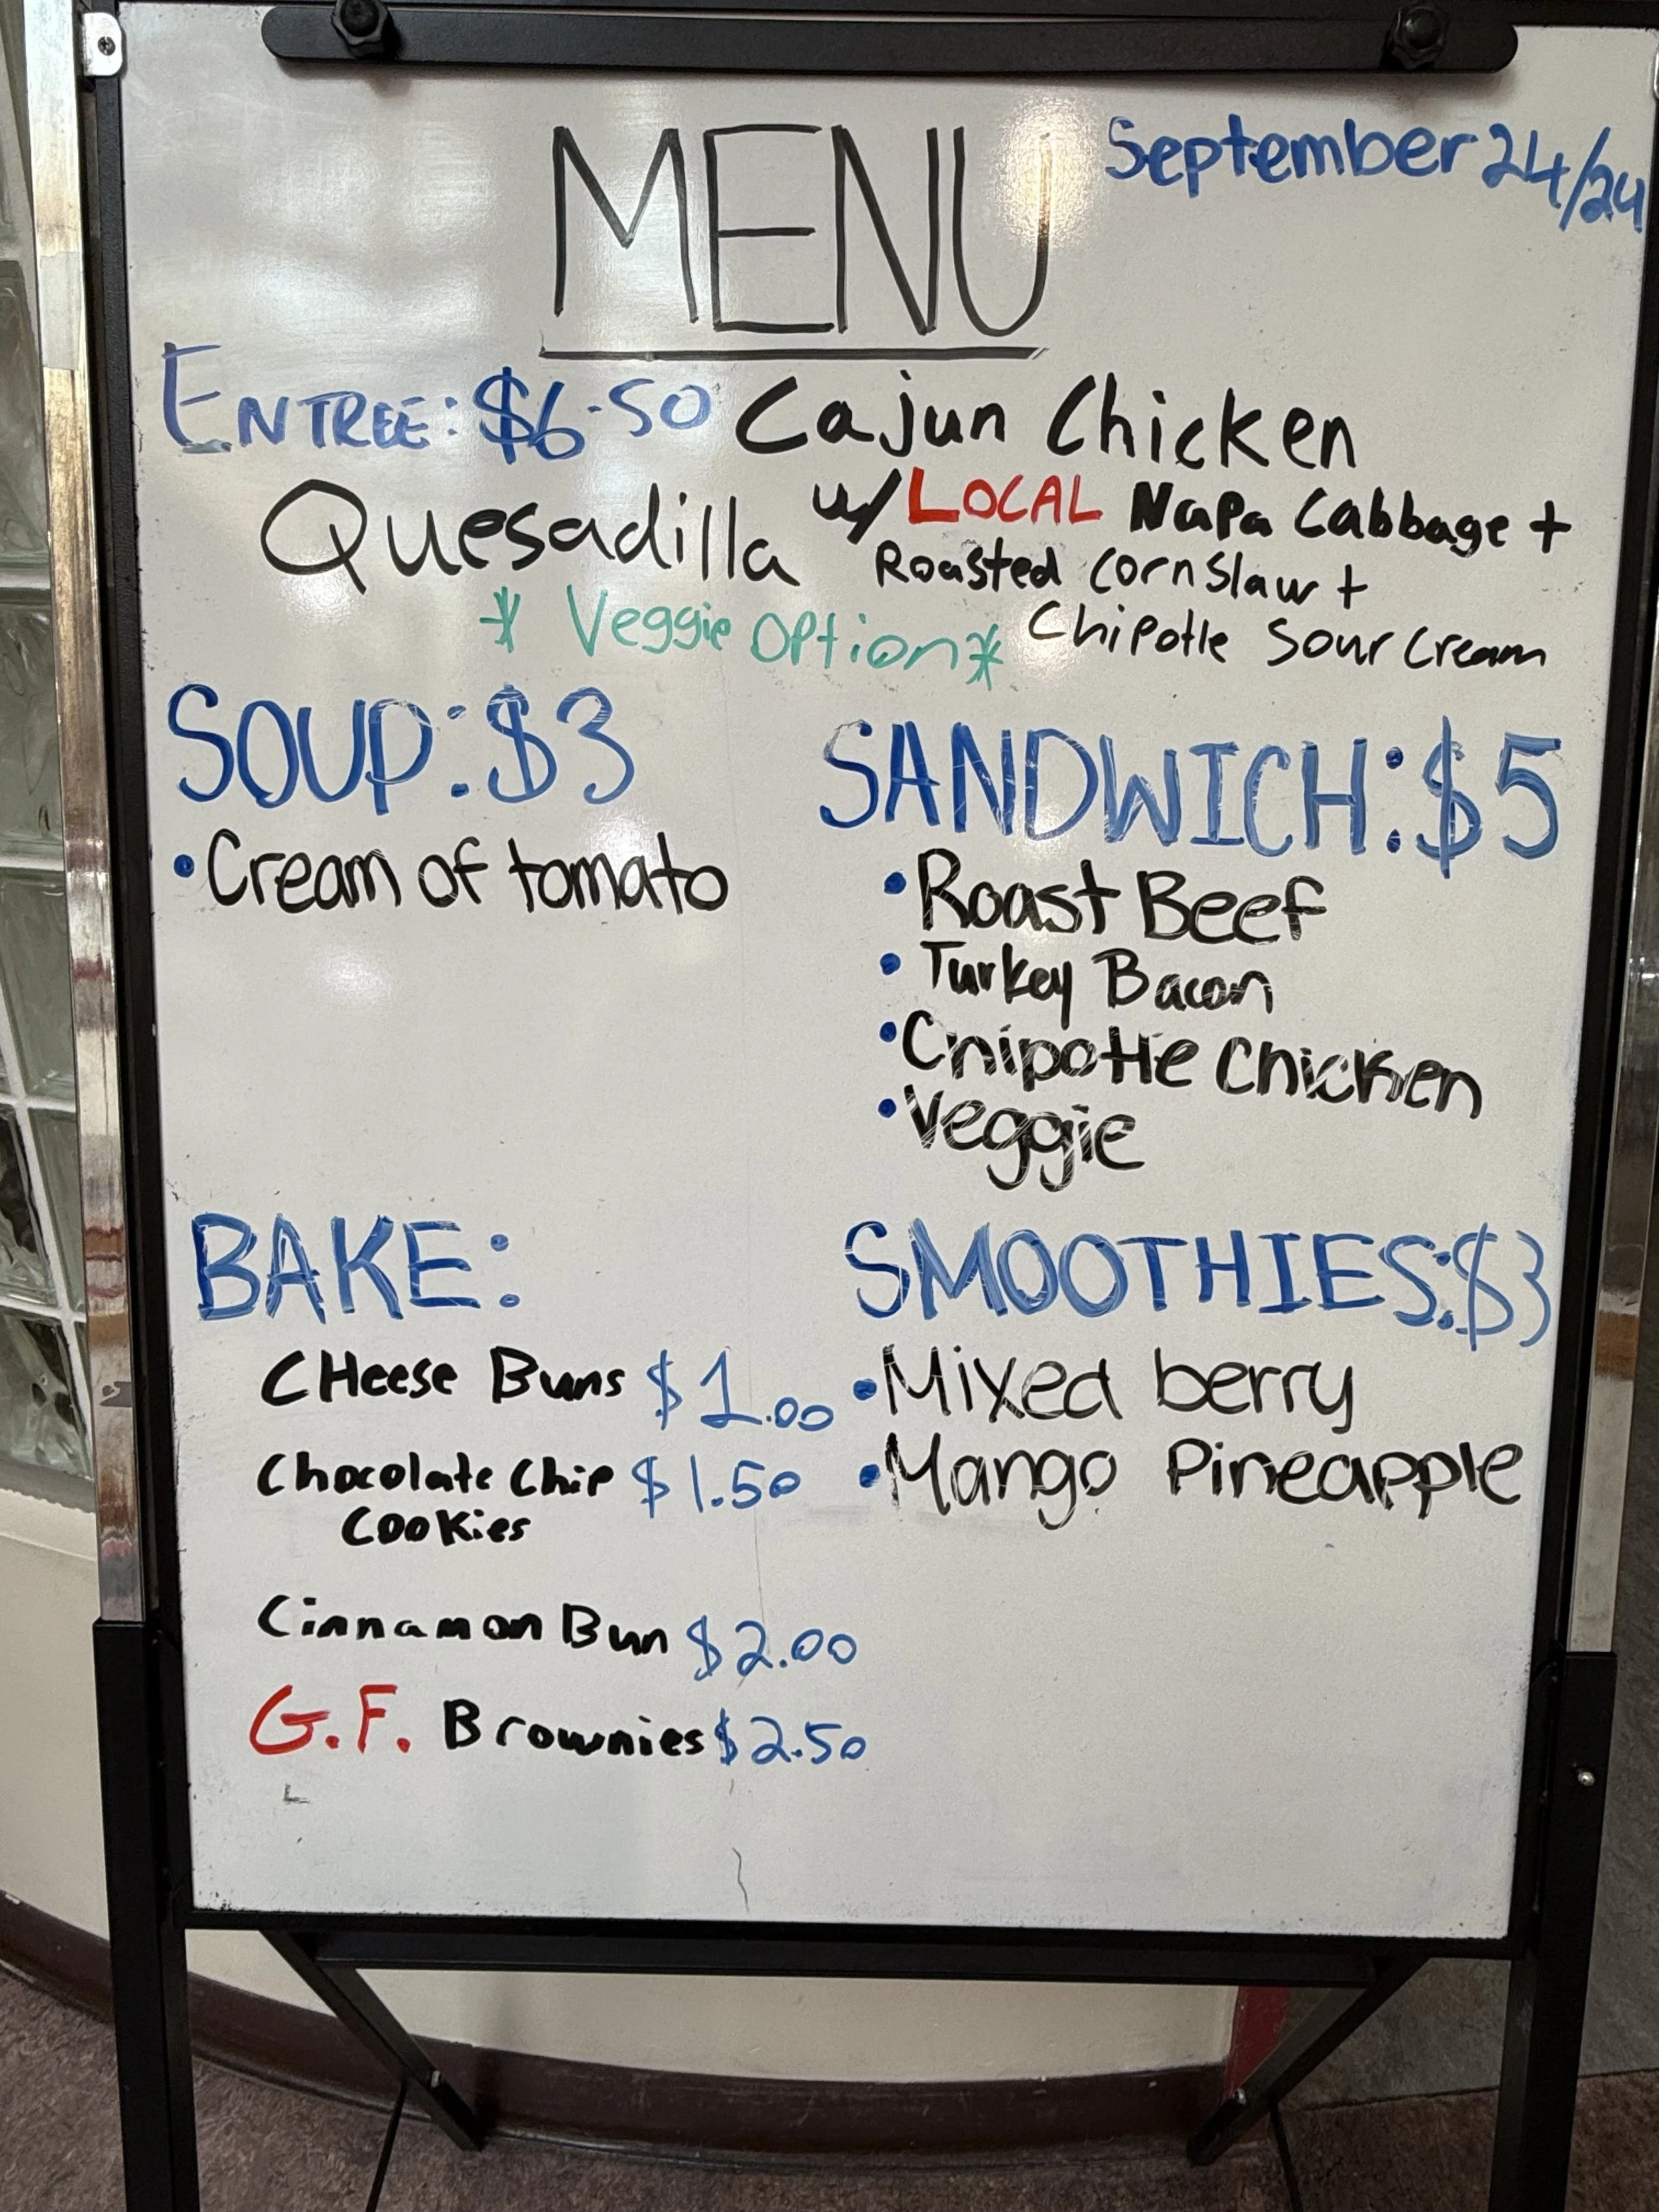 MENU
September 24/24
ENTREE: $6.50 Cajun Chicken
Quesadilla w/ LOCAL Napa Cabbage +
Roasted Corn Slaw +
* Veggie Option * Chipotle Sour Cream
SOUP: $3
• Cream of tomato
SANDWICH: $5
• Roast Beef
• Turkey Bacon
• Chipotle Chicken
• Veggie
BAKE:
CHeese Buns $1.00
Chocolate Chip $1.50
Cookies
Cinnamon Bun $2.00
G.F. Brownies $2.50
SMOOTHIES: $3
• Mixed berry
• Mango Pineapple